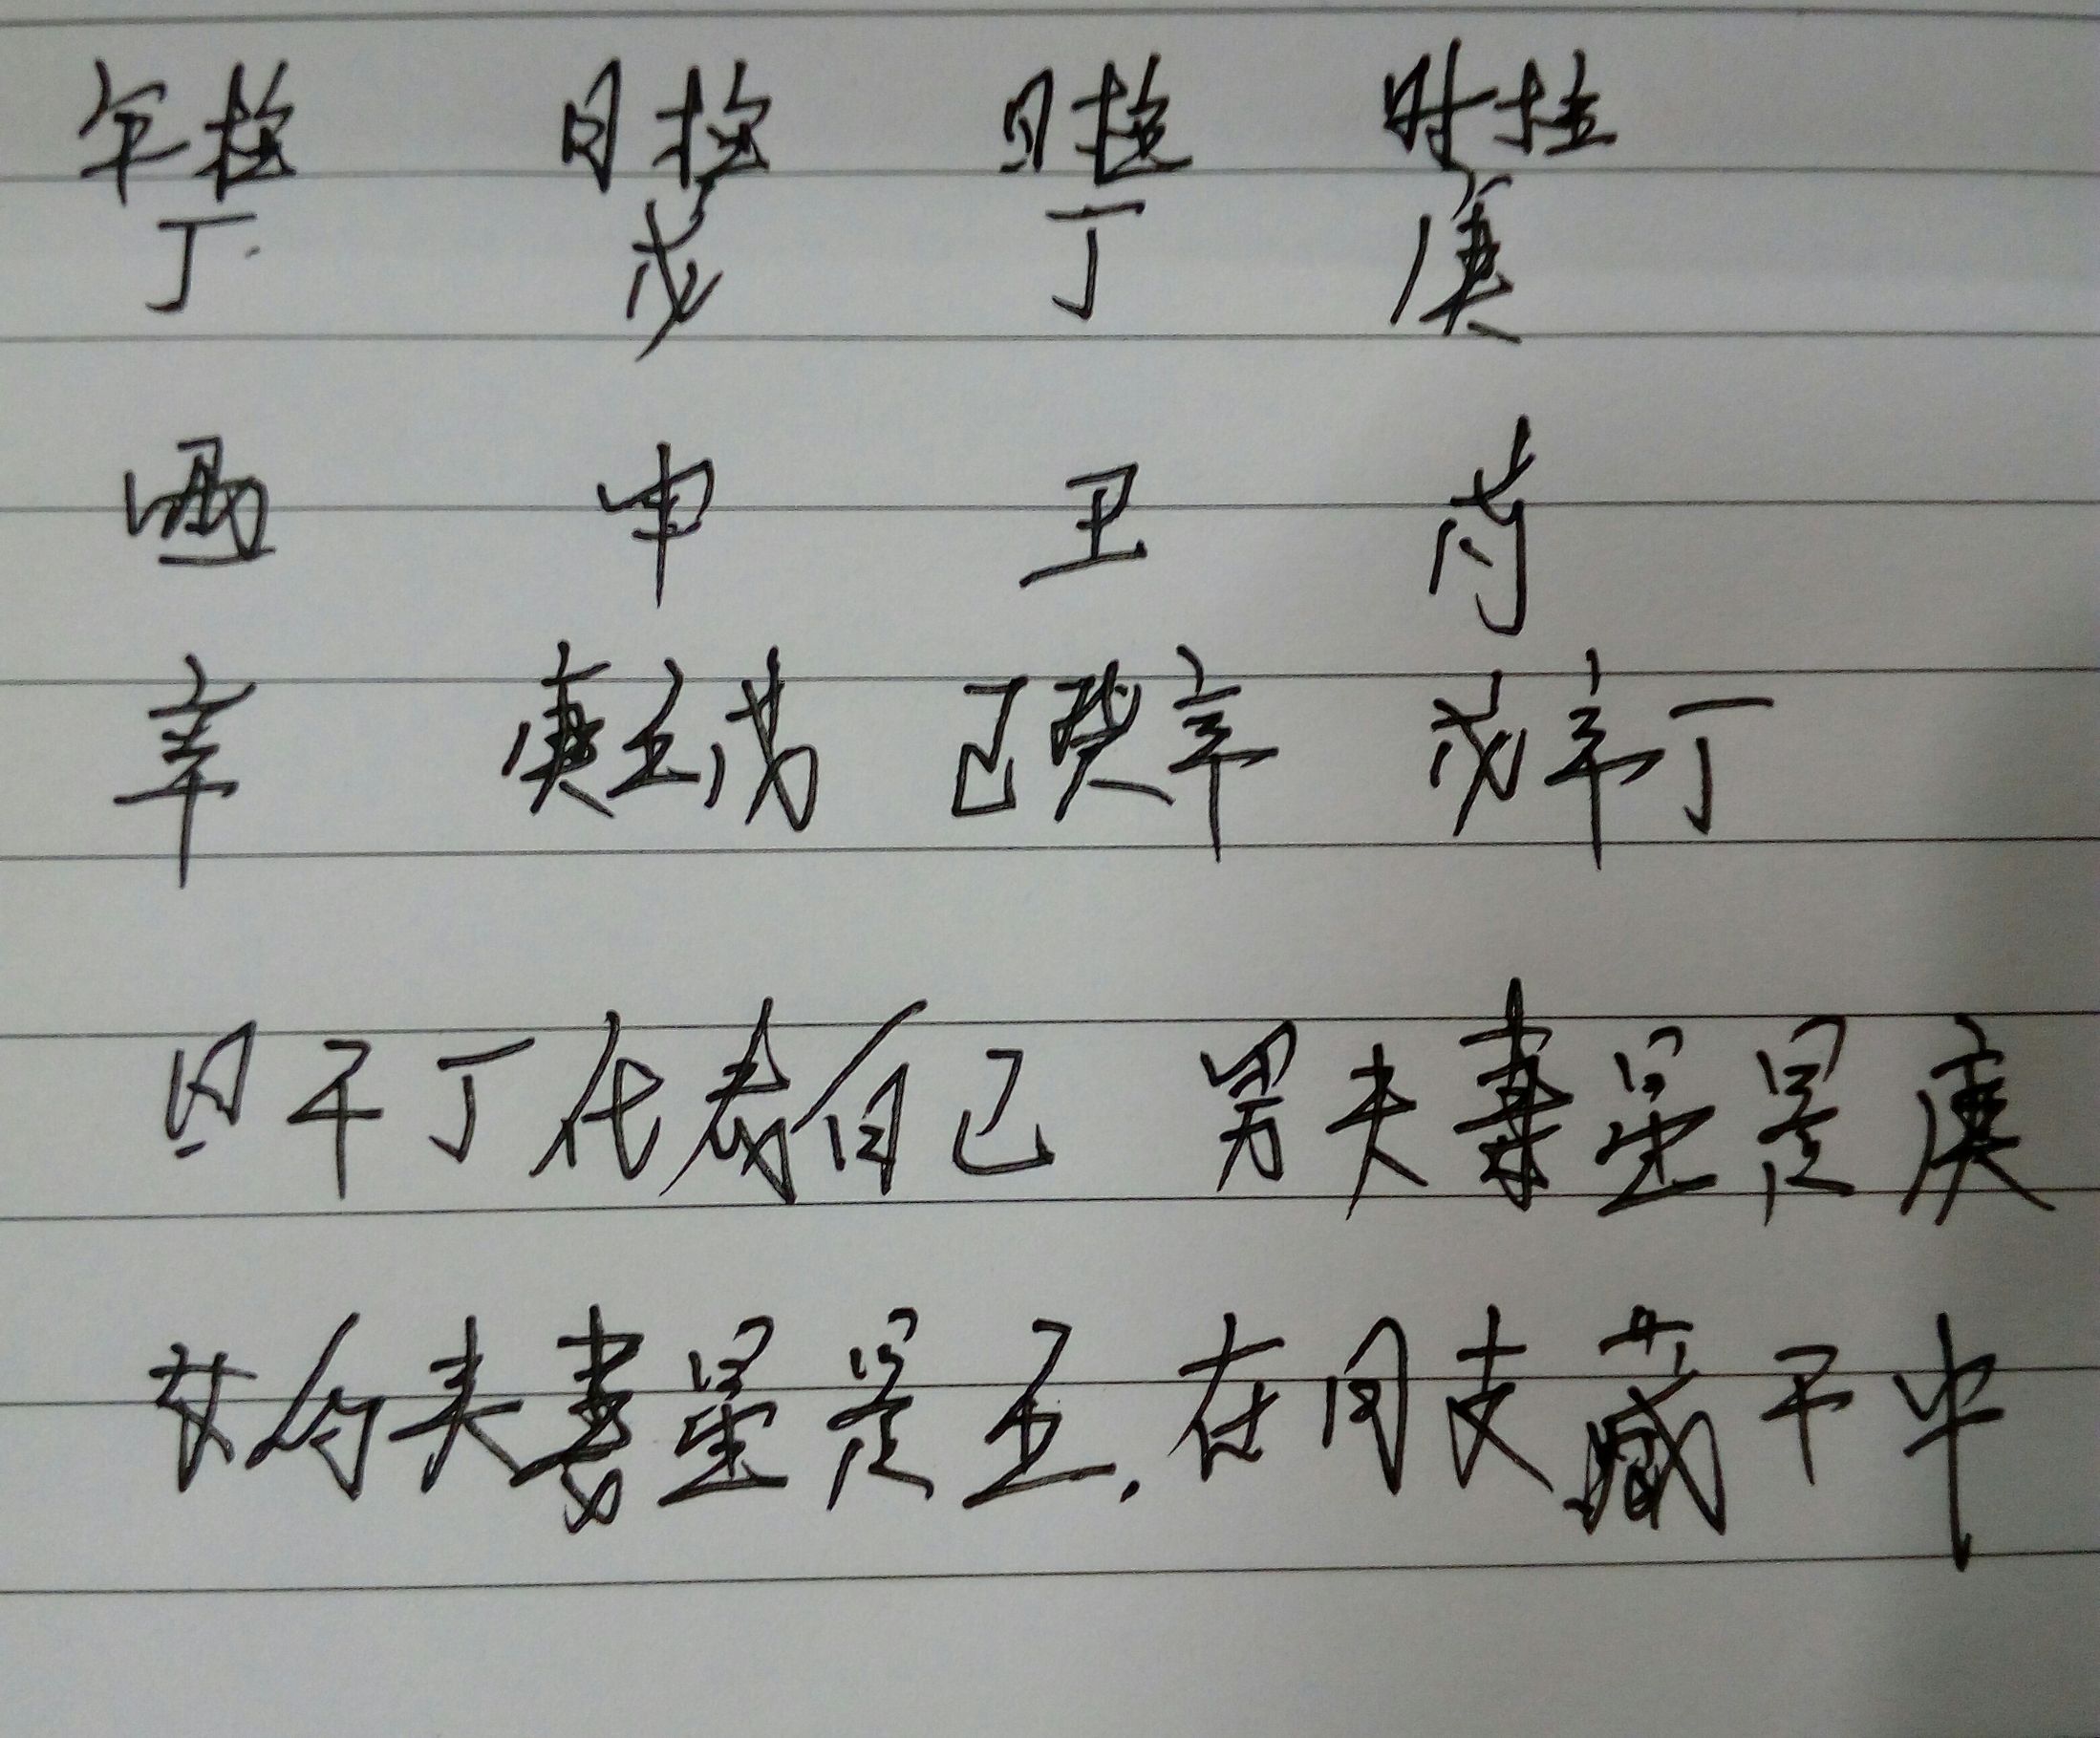 年柱 月柱 日柱 时柱
丁 戊 丁 庚
酉 申 丑 戌
辛 庚壬戊 己癸辛 戊辛丁
日干丁代表自己 男夫妻星是庚
女的夫妻星是壬.在月支藏干中